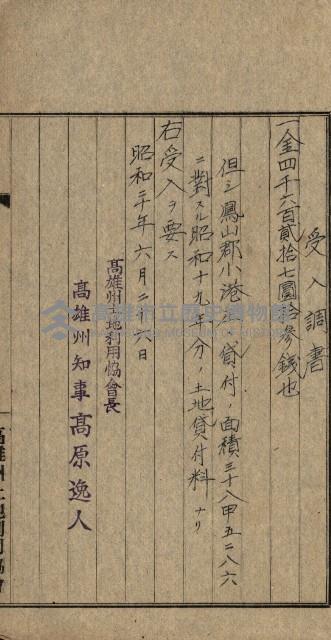 受入調書
一金四千六百貳拾七圓拾參錢也
但シ鳳山郡小港 貸付、面積三十八甲五二八六
ニ對スル昭和十九年 分、土地貸付料ナリ
右受入ヲ要ス
昭和二十年六月二十六日
高雄州土地利用協會長
高雄州知事高原逸人
高雄州土地利用協會
高雄市立歷史博物館